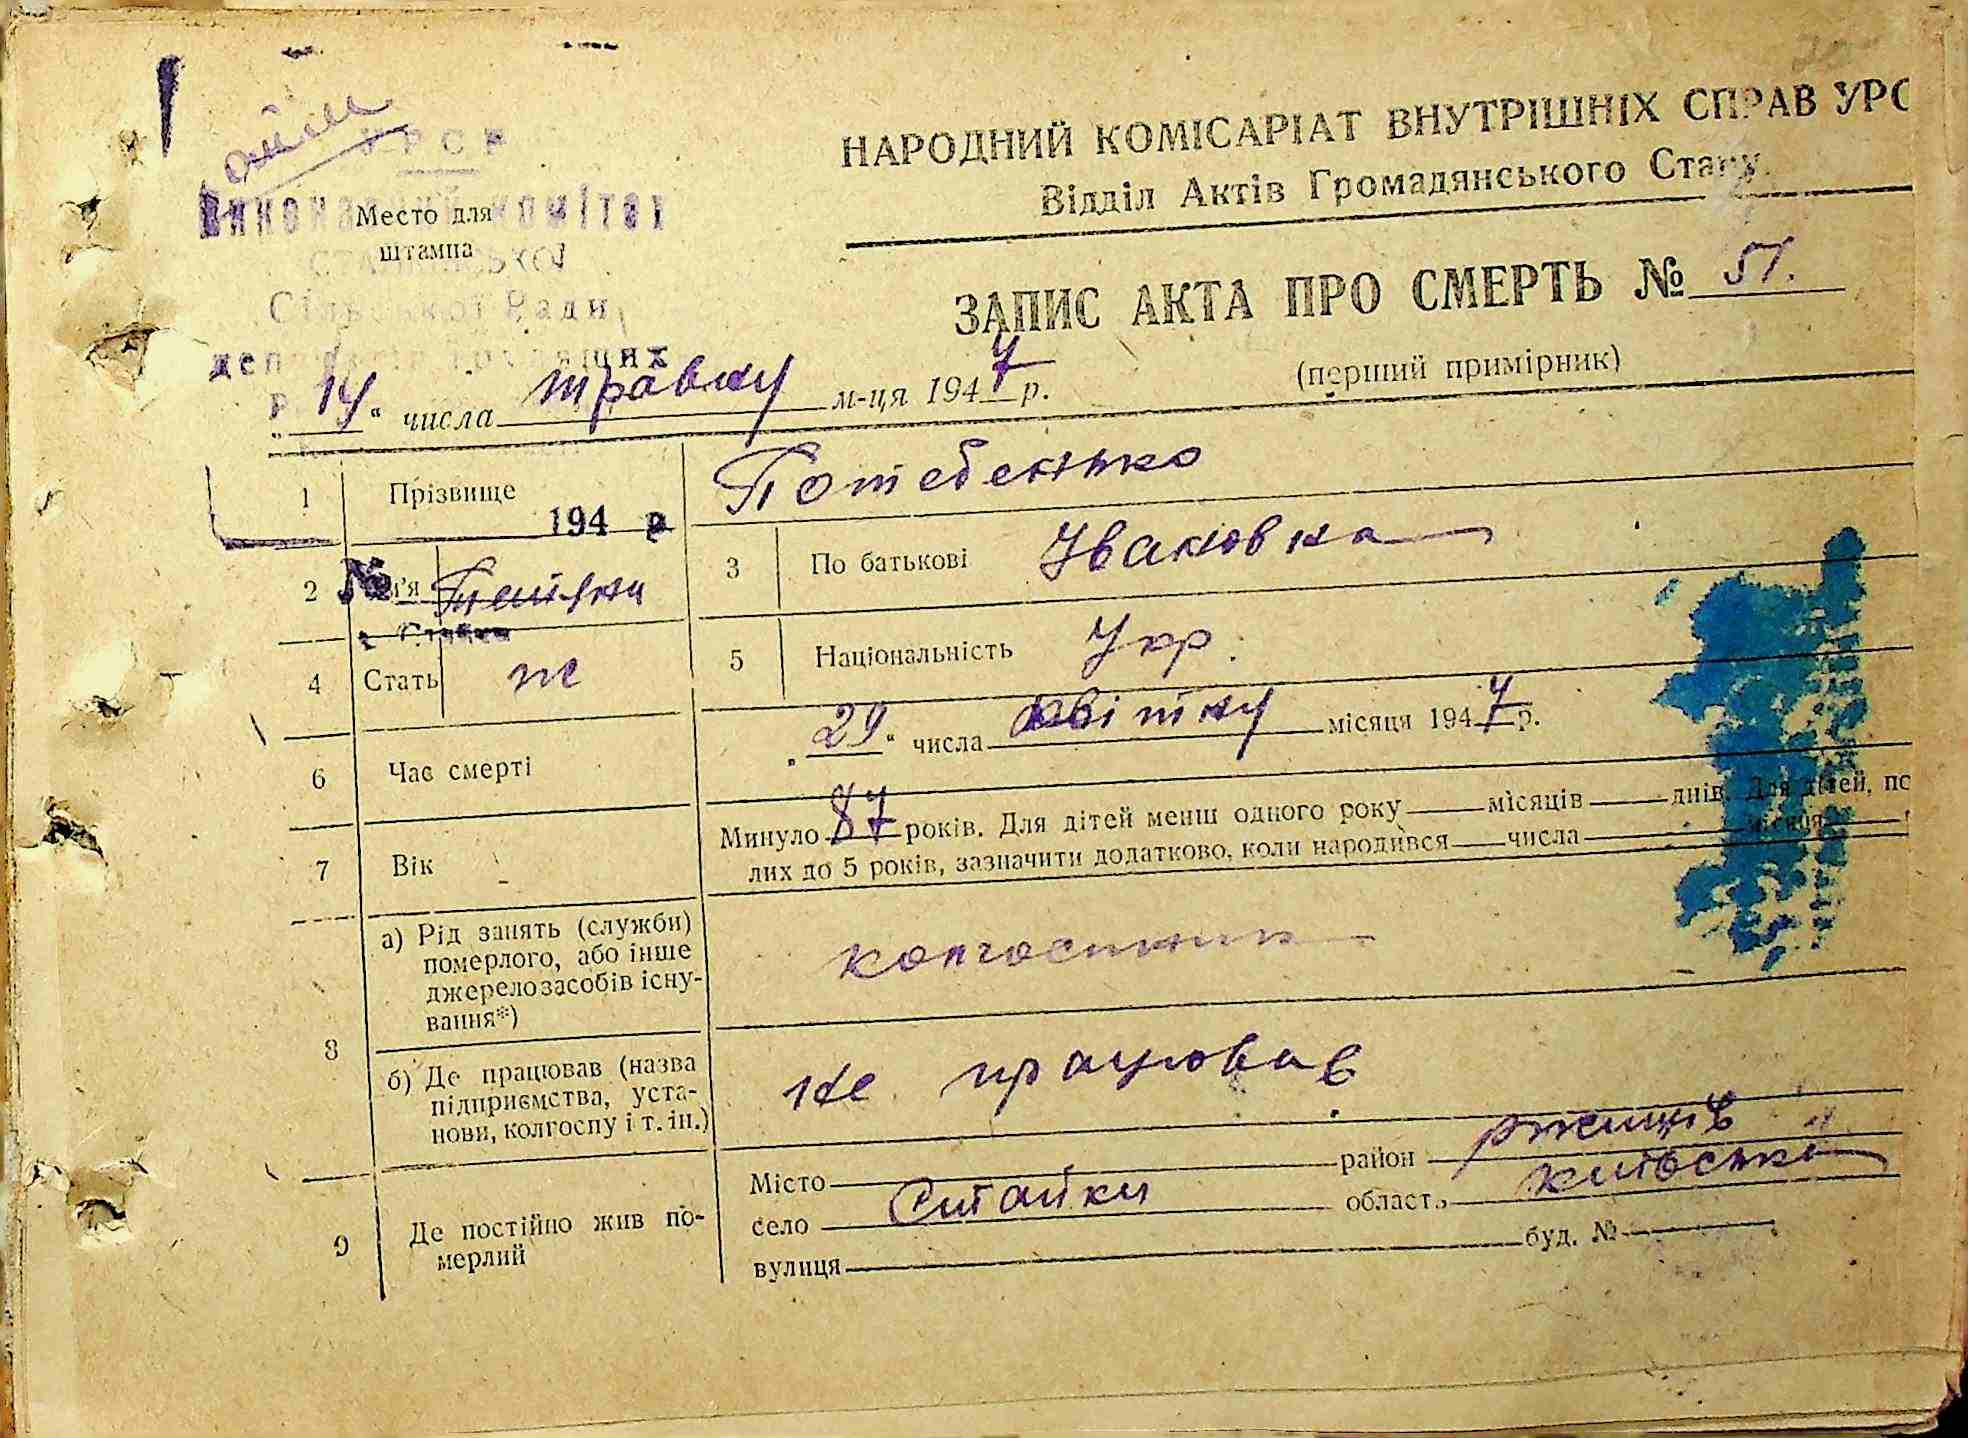 УРСР
Виконавчий комітет
Место для
штампа
Сільської Ради
депутатів трудящих
194 р
№
с. Стайки
НАРОДНИЙ КОМІСАРІАТ ВНУТРІШНІХ СПРАВ УРС
Відділ Актів Громадянського Стану
ЗАПИС АКТА ПРО СМЕРТЬ № 51.
(перший примірник)
„14“ числа травня м-ця 1947 р.
1 Прізвище Потебенько
2 Ім'я Тетяна
3 По батькові Івановна
4 Стать ж
5 Національність Укр.
6 Час смерті „29“ числа квітня місяця 1947 р.
7 Вік Минуло 87 років. Для дітей менш одного року місяців днів. Для дітей, по
лих до 5 років, зазначити додатково, коли народився числа місяця
8 а) Рід занять (служби)
померлого, або інше
джерело засобів існу-
вання*)
колгоспник
б) Де працював (назва
підприємства, уста-
нови, колгоспу і т. ін.)
не працював
9 Де постійно жив по-
мерлий
Місто район Ржищів
село Стайки область київська
вулиця буд. №